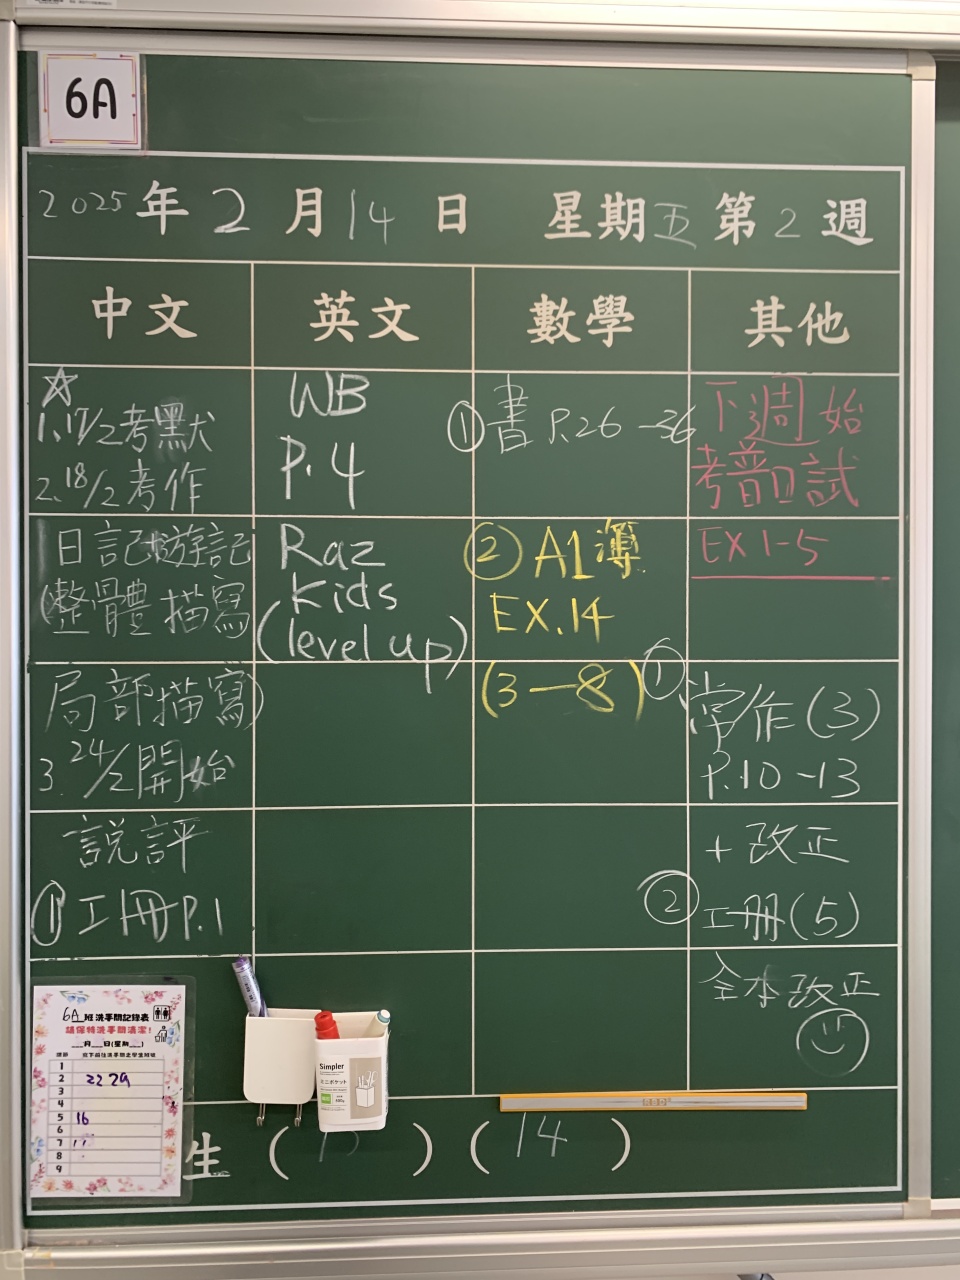 6A
2025年2月14日 星期五第2週
中文 英文 數學 其他
☆
1. 17/2考默
2. 18/2考作
日記+遊記
(整體描寫
局部描寫)
3. 24/2開始
說評
① 工冊P.1
WB
P.4
Raz
Kids
(level up)
① 書P.26-36
② A1簿
EX.14
(3-8)
下週始
考普口試
EX 1-5
① 常作(3)
P.10-13
+改正
② 工冊(5)
全本改正
6A班洗手間記錄表
請保持洗手間清潔!
___月___日(星期___)
課節
1
2 22 29
3
4
5 16
6
7
8
9
Simpler
ミニポケット
生( )(14)